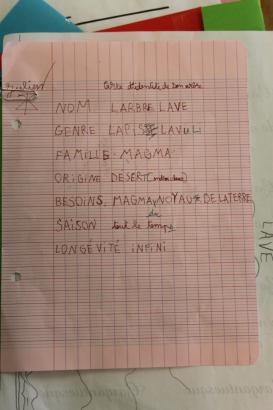 Julien
Carte d'identité de son arbre
NOM LARBRE LAVE
GENRE LAPIS LAVULI
FAMILLE MAGMA
ORIGINE DESERT
BESOINS MAGMA NOYAU DE LA TERRE
SAISON tout le temps
LONGÉVITÉ INFINI
LAVE